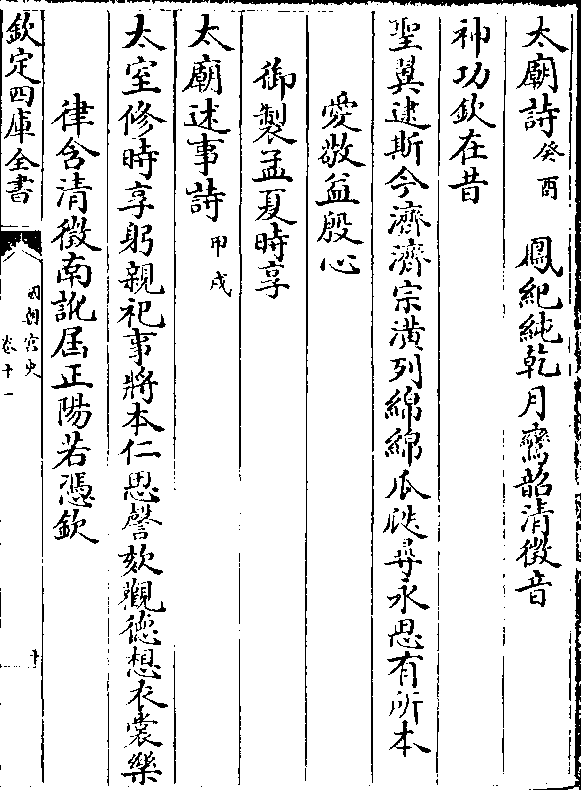 太廟詩癸酉　鳳紀純乾月鸞韶清徴音
神功欽在昔
聖翼逮斯今濟濟宗潢列綿綿瓜瓞尋永思有所本
愛敬益殷心
御製孟夏時享
太廟述事詩甲戌
太室修時享躬親祀事將本仁思謦欬觀德想衣裳樂
律含清徴南訛届正陽若憑欽
欽定四庫全書
國朝宫史
卷十一
十